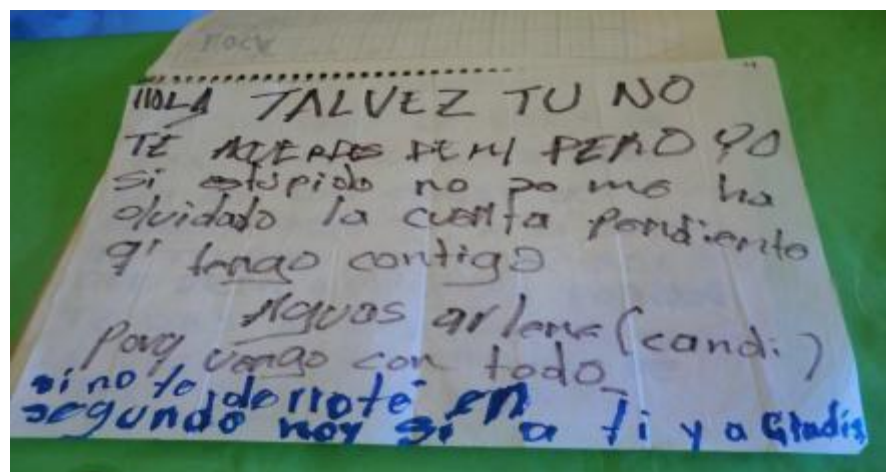 HOLA TALVEZ TU NO
TE ACUERDES DE MI PERO YO
si estúpido no se me ha
olvidado la cuenta pendiente
q' tengo contigo
Aguas arlene (candi)
porq vengo con todo
si no te derroté en
segundo hoy si a ti y a Gladis